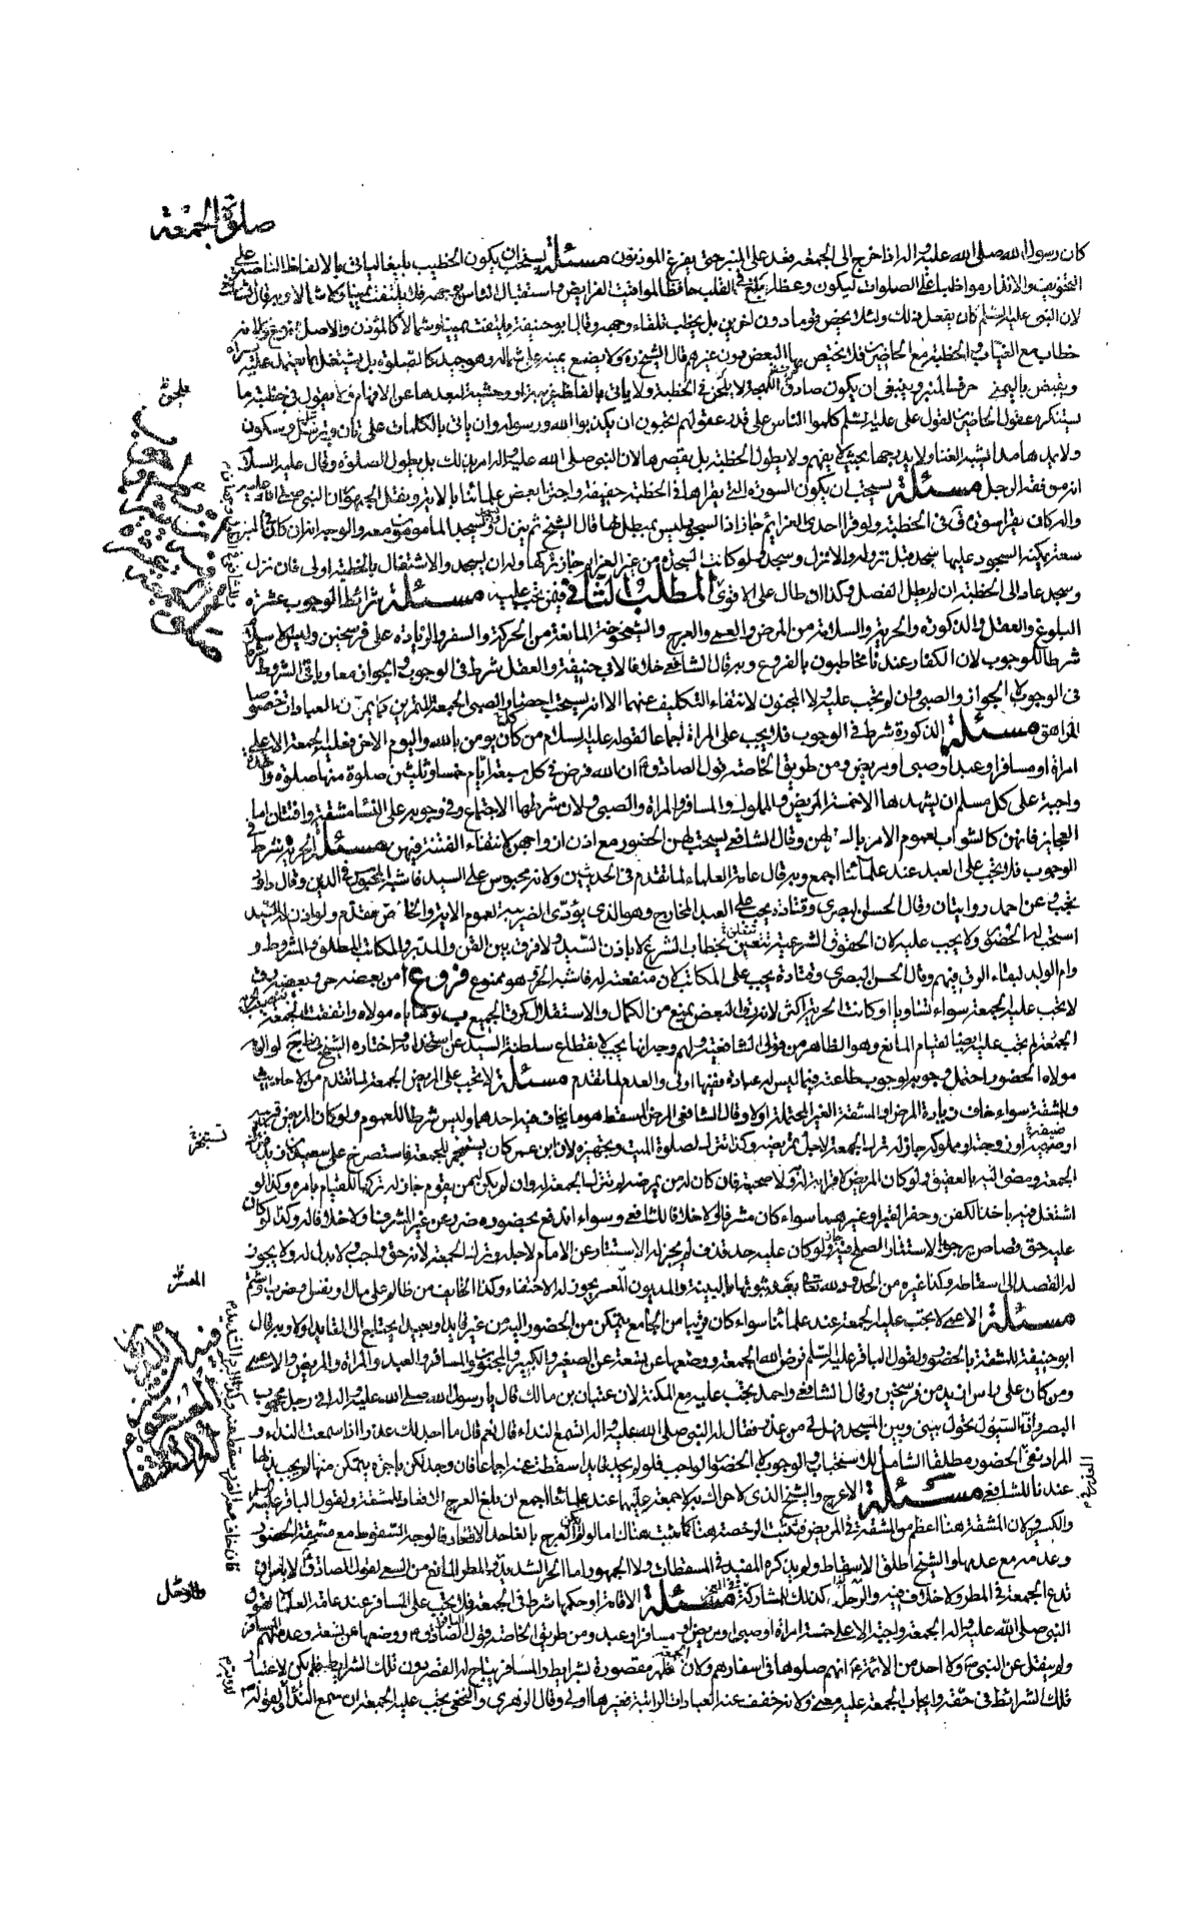 صلوة الجمعة
كان رسول الله صلى الله عليه واله اذا خرج الى الجمعة قعد على المنبر حتى يفرغ المؤذنون مسئلة يستحب ان يكون الخطيب بليغا ياتى بالالفاظ الناصة على
التخويف والانذار مواظبا على الصلوات ليكون وعظه ابلغ فى القلب حافظا لمواقيت الفرايض واستقبال الناس بوجهه فلا يلتفت يمينا ولا شمالا وبه قال الشافعى
لان النبى عليه السلم كان يفعل ذلك ولئلا يخص قوما دون اخرين بل يخطب تلقاء وجهه وقال ابو حنيفة يلتفت يمينا وشمالا كالمؤذن والاصل ممنوع ولانه
خطاب مع الغياب والخطبة مع الحاضرين فلا يختص بها البعض دون غيرهم قال الشيخ ره ولا يضع يمينه على شماله وهو جيد كالصلوة بل يشتغل بما يعتمد عليه يسراه
ويقبض باليمنى حرف المنبر وينبغى ان يكون صادق اللهجة لا يلحن فى الخطبة ولا ياتى بالفاظ غريبة او وحشية لبعدها عن الافهام ولا يقول فى خطبته ما
يستنكره عقول الحاضرين لقول على عليه السلم كلموا الناس على قدر عقولهم اتحبون ان يكذبوا الله ورسوله وان ياتى بالكلمات على تأن وترسل وسكون
ولا يمدها مدا يشبه الغناء ولا يدرجها بحيث لا يفهم ولا يطول الخطبة بل يقصرها لان النبى صلى الله عليه واله امر بذلك بل يطول الصلوة وقال عليه السلم
انه من فقه الرجل مسئلة يستحب ان يكون السورة التى يقراها فى الخطبة خفيفة واجتزأ بعض علمائنا بالاية وبه قال الجمهور لان النبى صلى الله عليه
واله كان يقرا سورة ق فى الخطبة ولو قرا احدى العزايم جاز فاذا السجود وليس بمبطل لها قال الشيخ ثم ينزل ويسجد المامومون معه والوجه انه ان كان فى المنبر
سعة يمكنه السجود عليها سجد قبل نزوله والا نزل وسجد ولو كانت السجدة من غير العزايم جاز تركها وله ان يسجد والاشتغال بالخطبة اولى فان نزل
وسجد عاد الى الخطبة ان لم يطل الفصل وكذا ان طال على الاقوى المطلب الثانى فيمن تجب عليه مسئلة شرائط الوجوب عشرة
البلوغ والعقل والذكورة والحرية والسلامة من المرض والعمى والعرج والشيخوخة المانعة من الحركة والسفر والزيادة على فرسخين وليس الاسلام
شرطا للوجوب لان الكفار عندنا مخاطبون بالفروع وبه قال الشافعى خلافا لابى حنيفة والعقل شرط فى الوجوب والجواز معا وباقى الشروط
فى الوجوب لا الجواز والصبى وان لم تجب عليه ولا المجنون لانتفاء التكليف عنهما الا انه يستحب حضور الصبى الجمعة للتمرين كما يمرن بالعبادات خصوصا
المراهق مسئلة الذكورة شرط فى الوجوب فلا يجب على المراة اجماعا لقوله عليه السلام من كان يؤمن بالله واليوم الاخر فعليه الجمعة الا على
امراة او مسافر او عبد او صبى او مريض ومن طريق الخاصة قول الصادق ان الله فرض فى كل سبعة ايام خمسا وثلثين صلوة منها صلوة واحدة
واجبة على كل مسلم ان يشهدها الا خمسة المريض والمملوك والمسافر والمراة والصبى ولان شرطها الاجتماع وفى وجوبه على النساء مشقة وافتتان اما
العجايز فانهن كالشواب لعموم الامر بالستر لهن وقال الشافعى يستحب لهن الحضور مع اذن ازواجهن لانتفاء الفتنة فيهن مسئلة الحرية شرط فى
الوجوب فلا تجب على العبد عند علمائنا اجمع وبه قال عامة العلماء لما تقدم فى الحديثين ولانه محبوس على السيد فاشبه المحبوس فى الدين وقال داود
تجب وعن احمد روايتان وقال الحسن البصرى وقتادة يجب على العبد المخارج وهو الذى يؤدى الضريبة لعموم الاية والخاص مقدم ولو اذن له السيد
استحب له الحضور ولا يجب عليه لان الحقوق الشرعية تتعين بخطاب الشرع لا باذن السيد ولا فرق بين القن والمدبر والمكاتب المطلق والمشروط و
وام الولد لبقاء الرق فيهم وقال الحسن البصرى وقتادة يجب على المكاتب لان منفعته له فاشبه الحر وهو ممنوع فروع ا من بعضه حر وبعضه رق
لا تجب عليه الجمعة سواء تساويا او كانت الحرية اكثر لان رق البعض يمنع من الكمال والاستقلال كرق الجميع ب لو هاياه مولاه واتفقت الجمعة
الجمعة لم تجب عليه ايضا لقيام المانع وهو الظاهر من قولى الشافعية ولهم وجه انها تجب لانقطاع سلطنة السيد عن استخدامه واختاره الشيخ ج لو الزمه
مولاه الحضور احتمل وجوبه لوجوب طاعته فيما ليس بعبادة ففيها اولى والعدم لما تقدم مسئلة لا تجب على المريض الجمعة لما تقدم من الاحاديث
وللمشقة سواء خاف زيادة المرض او المشقة الغير المحتملة او لا وقال الشافعى المرض المسقط هو ما يخاف فيه احدهما وليس شرطا للعموم ولو كان المريض قريبه
او ضيفه او زوجته او مملوكه جاز له ترك الجمعة لاجل تمريضه وكذا تترك لصلوة الميت وتجهيزه لان ابن عمر كان يستجمر للجمعة فاستصرخ على سعيد فترك
الجمعة ومضى اليه بالعقيق ولو كان المريض لا قرابة له ولا صحبة فان كان له من يمرضه لم تترك الجمعة له وان لم يكن له من يقوم جاز له تركها للقيام بامره وكذا لو
اشتغل عنه باخذ الكفن وحفر القبر او غيرهما سواء كان مشرفا او لا خلافا للشافعى وسواء اندفع بحضوره ضرر عن غير المشرف او لا خلافا له وكذا لو كان
عليه حق قصاص يرجو بالاستتار الصلح فيه جاز ولو كان عليه حد قذف لم يجز له الاستتار عن الامام لاجله وترك الجمعة لانه حق واجب لا بدل له ولا يجوز
له القصد الى اسقاطه وكذا غيره من الحدود لله تعالى بعد ثبوتها بالبينة والمديون المعسر يجوز له الاختفاء وكذا الخايف من ظالم على مال او نفس او ضرب او شتم
مسئلة الاعمى لا تجب عليه الجمعة عند علمائنا سواء كان قريبا من الجامع يتمكن من الحضور اليه من غير قايد او بعيد يحتاج الى القايد او لا وبه قال
ابو حنيفة للمشقة بالحضور ولقول الباقر عليه السلم فرض الله الجمعة ووضعها عن تسعة عن الصغير والكبير والمجنون والمسافر والعبد والمراة والمريض والاعمى
ومن كان على راس ازيد من فرسخين وقال الشافعى واحمد يجب عليه مع المكنة لان عتبان بن مالك قال يا رسول الله صلى الله عليه واله انى رجل محجوب
البصر وان السيول تحول بينى وبين المسجد فهل لى من عذر فقال له النبى صلى الله عليه واله اتسمع النداء قال نعم قال ما اجد لك عذرا اذا سمعت النداء و
المراد نفى الحضور مطلقا الشامل لك استحباب والوجوب كالحضور الواجب فلو لم يجد قايدا سقطت عنه اجماعا فان وجد لكن باجرة يتمكن منها لم يجب بذلها
عندنا للشافعى مسئلة الاعرج والشيخ الذى لا حراك به لا جمعة عليهما عند علمائنا اجمع ان بلغ العرج الاقعاد للمشقة ولقول الباقر عليه السلم
والكبير ولان المشقة هنا اعظم من المشقة فى المريض فتثبت الرخصة هنا كما تثبت هناك اما لو لم يكن العرج بالغا حد الاقعاد فالوجه السقوط مع مشقة الحضور
وعدمه مع عدمها والشيخ اطلق الاسقاط ولم يذكره المفيد فى المسقطات ولا الجمهور اما الحر الشديد والمطر المانع من السعى لقول الصادق لا باس ان
تدع الجمعة فى المطر ولا خلاف فيه والوحل كذلك للمشاركة مسئلة الاقامة او حكمها شرط فى الجمعة فلا تجب على المسافر عند عامة العلماء لقول
النبى صلى الله عليه واله الجمعة واجبة الا على خمسة امراة او صبى او مريض او مسافر او عبد ومن طريق الخاصة قول الصادق ووضعها عن تسعة وعد منهم المسافر
ولم ينقل عن النبى ولا احد من الائمة انهم صلوها فى اسفارهم ولان الجمعة ظهر مقصورة بشرايط والمسافر يباح له القصر بدون تلك الشرايط فلم يكن لاعتبار
تلك الشرائط فى حقه وايجاب الجمعة عليه معنى ولانه خفف عنه العبادات الراتبة فغيرها اولى وقال الزهرى والنخعى يجب عليه الجمعة ان سمع النداء لقوله
يلحق
تستجمر
المعسر
والوحل